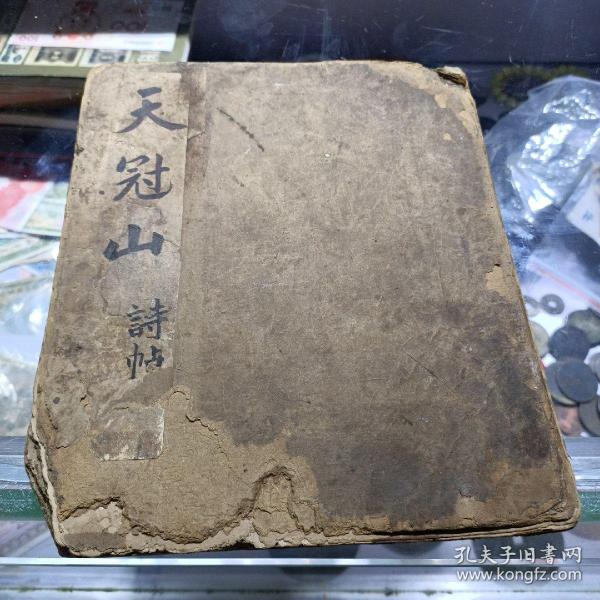 天冠山
詩帖
孔夫子旧書网
www.kongfz.com